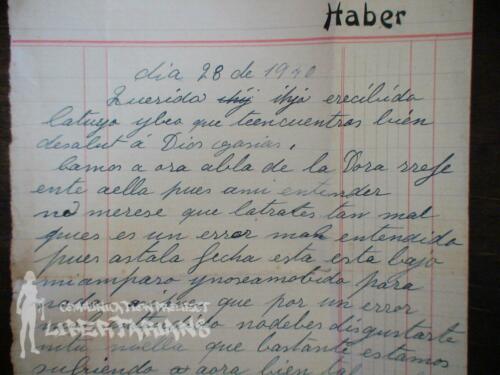 Haber
dia 28 de 1940
Querida ihja erecibido
latuya ybeo que teencuentras bien
desalut á Dios grasias,
bamos a ora abla de la Dora rrefe
ente aella pues ami entender
no merese que latrates tan mal
pues es un error mal entendido
pues astala fecha esta esta bajo
miamparo ynoseamobido para
que por un error
nodebes disgustarte
nitu niella que bastante estamos
sufriendo aora bien
COMMUNICATION PROJECT
LIBERTARIANS